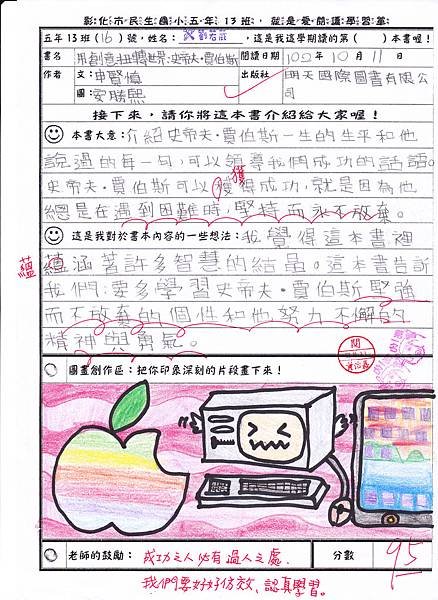 彰化市民生國小五年13班，就是愛閱讀學習單
五年13班(16)號，姓名：劉若莊，這是我這學期讀的第(　)本書喔！
書名 用創意扭轉世界：史帝夫·賈伯斯 閱讀日期 102年10月11日
作者 文：申賢慎 圖：安勝熙 出版社 明天國際圖書有限公司
接下來，請你將這本書介紹給大家喔！
本書大意：介紹史帝夫·賈伯斯一生的生平和他
說過的每一句，可以領導我們成功的話語。
史帝夫·賈伯斯可以獲得成功，就是因為他
獲
總是在遇到困難時，堅持而永不放棄。
這是我對於書本內容的一些想法：我覺得這本書裡
蘊
蘊涵著許多智慧的結晶。這本書告訴
我們：要多學習史帝夫·賈伯斯堅強
而不放棄的個性和他努力不懈的
精神與勇氣。
閱
圖畫創作區：把你印象深刻的片段畫下來！
老師的鼓勵：成功之人必有過人之處， 分數 95
我們要好好仿效、認真學習。